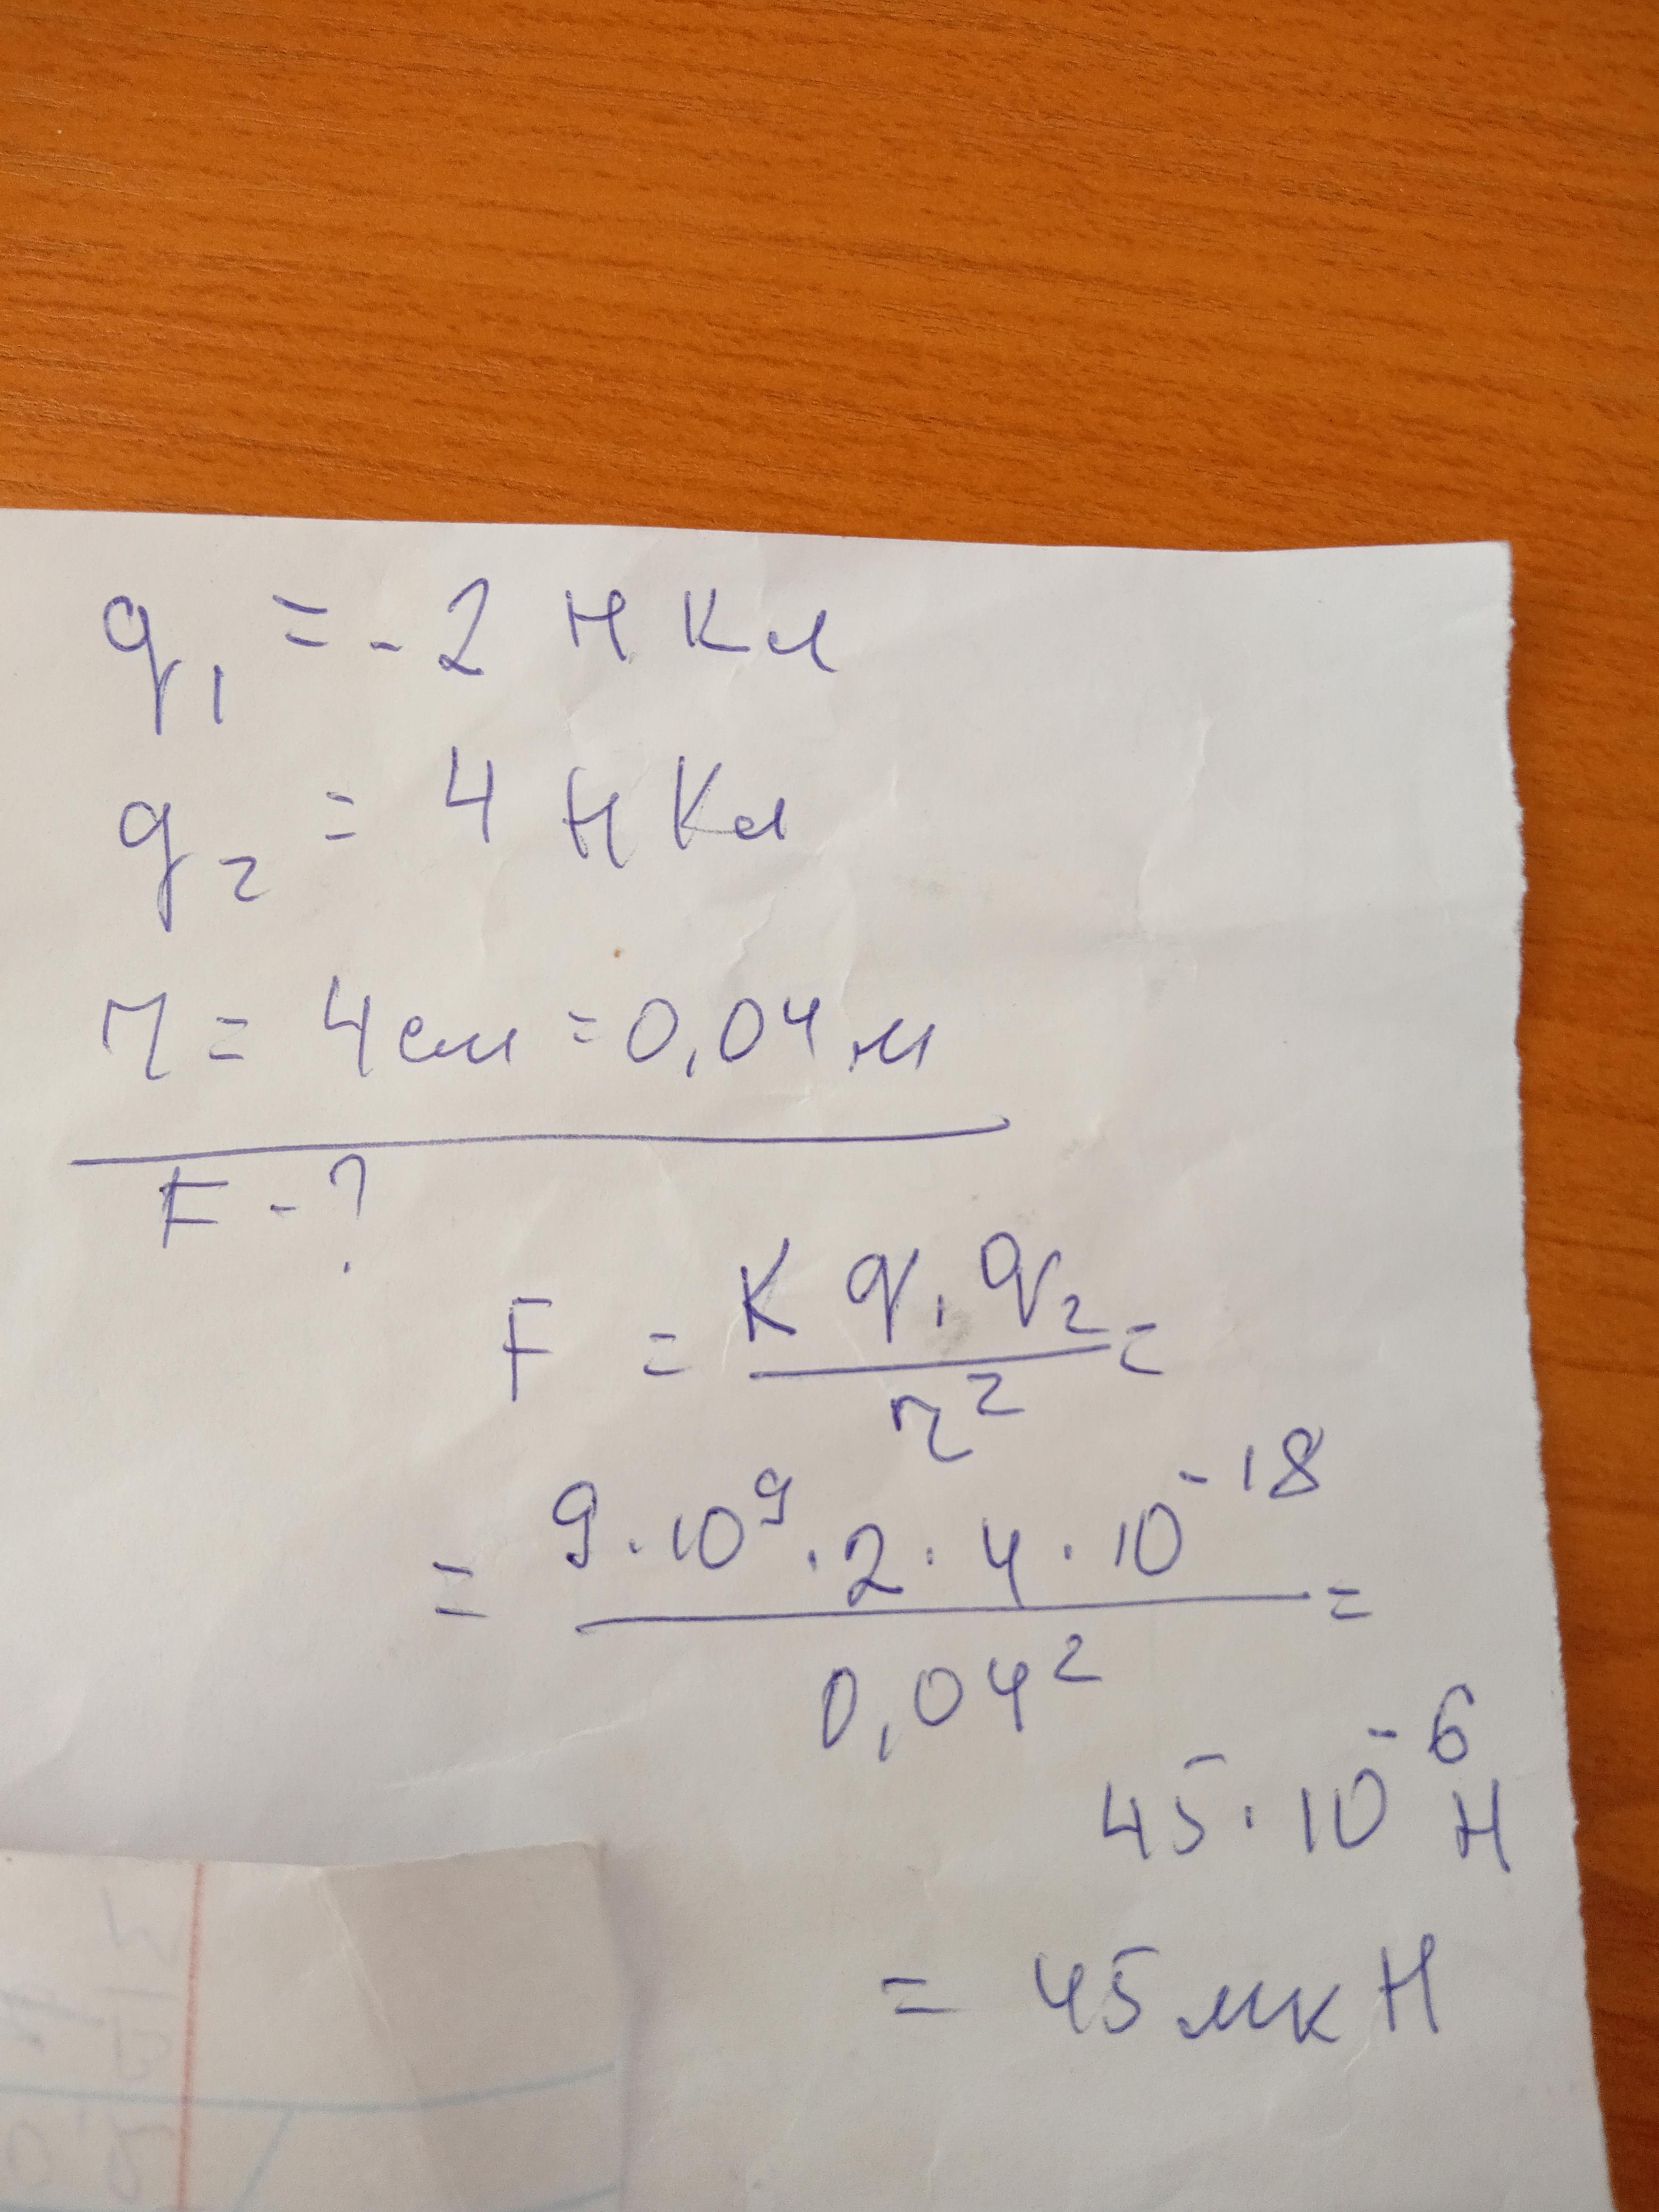 q₁ = -2 нКл
q₂ = 4 нКл
r = 4 см = 0,04 м
F - ?
F = K q₁ q₂ / r² =
= 9·10⁹·2·4·10⁻¹⁸ / 0,04² =
45·10⁻⁶ Н
= 45 мкН